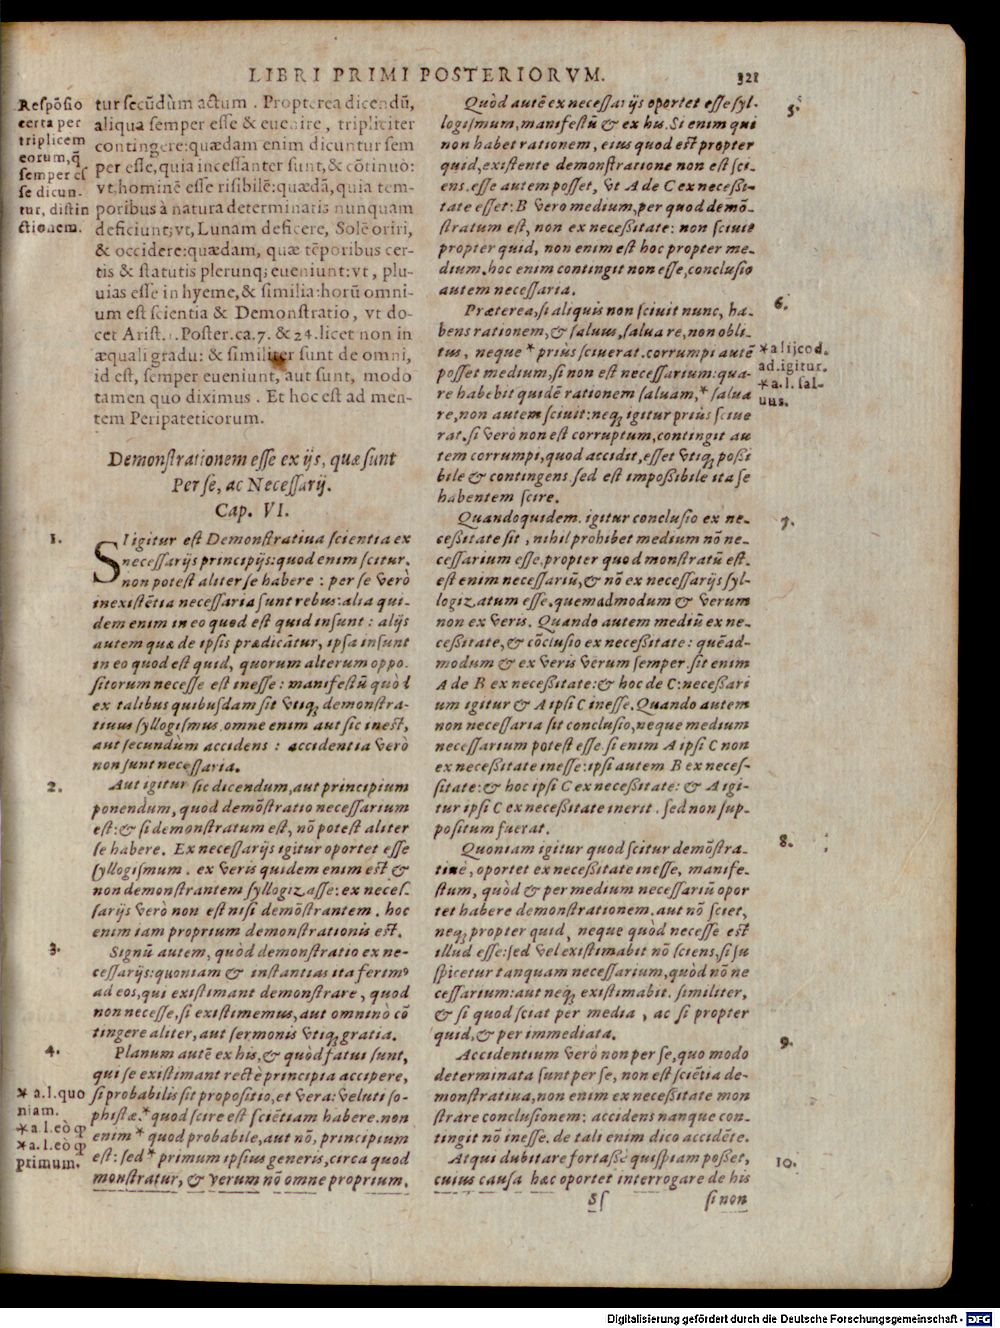 LIBRI PRIMI POSTERIORVM.
321
Respõsio
certa per
triplicem
eorum, q̃
semper es
se dicun-
tur, distin
ctionem.
tur secũdùm actum. Propterea dicendũ,
aliqua semper esse & euenire, tripliciter
contingere: quædam enim dicuntur sem
per esse, quia incessanter sunt, & cõtinuò:
vt, hominẽ esse risibilẽ: quædã, quia tem-
poribus à natura determinatis nunquam
deficiunt; vt, Lunam deficere, Solẽ oriri,
& occidere: quædam, quæ tẽporibus cer-
tis & statutis plerunq; eueniunt: vt, plu-
uias esse in hyeme, & similia: horũ omni-
um est scientia & Demonstratio, vt do-
cet Arist. 1. Poster. ca. 7. & 24. licet non in
æquali gradu: & similiter sunt de omni,
id est, semper eueniunt, aut sunt, modo
tamen quo diximus. Et hoc est ad men-
tem Peripateticorum.
Demonstrationem esse ex ijs, quæ sunt
Per se, ac Necessarij.
Cap. VI.
1.
SI igitur est Demonstratiua scientia ex
necessarijs principijs: quod enim scitur,
non potest aliter se habere: per se verò
inexistẽtia necessaria sunt rebus: alia qui-
dem enim in eo quod est quid insunt: alijs
autem quæ de ipsis prædicãtur, ipsa insunt
in eo quod est quid, quorum alterum oppo-
sitorum necesse est inesse: manifestũ quòd
ex talibus quibusdam sit vtiq; demonstra-
tiuus syllogismus. omne enim aut sic inest,
aut secundùm accidens: accidentia verò
non sunt necessaria.
2.
Aut igitur sic dicendum, aut principium
ponendum, quod demõstratio necessarium
est: & si demonstratum est, nõ potest aliter
se habere. Ex necessarijs igitur oportet esse
syllogismum. ex veris quidem enim est &
non demonstrantem syllogizasse: ex neces-
sarijs verò non est nisi demõstrantem. hoc
enim iam proprium demonstrationis est.
3.
Signũ autem, quòd demonstratio ex ne-
cessarijs: quoniam & instantias ita ferimꝰ
ad eos, qui existimant demonstrare, quod
non necesse, si existimemus, aut omninò cõ
tingere aliter, aut sermonis vtiq; gratia.
4.
Planum autẽ ex his, & quòd fatui sunt,
qui se existimant rectè principia accipere,
si probabilis sit propositio, et vera: veluti so-
phistæ. * quod scire est sciẽtiam habere. non
enim * quod probabile, aut nõ, principium
est: sed * primum ipsius generis, circa quod
monstratur, & verum nõ omne proprium.
* a.l. quo
niam.
* a.l. eò ꝙ
* a.l. eò ꝙ
primum.
5.
Quòd autẽ ex necessarijs oportet esse syl-
logismum, manifestũ & ex his. Si enim qui
non habet rationem, eius quod est propter
quid, existente demonstratione non est sci-
ens. esse autem posset, vt A de C ex necessi-
tate esset: B vero medium, per quod demõ-
stratum est, non ex necessitate: non sciuit
propter quid, non enim est hoc propter me-
dium. hoc enim contingit non esse, conclusio
autem necessaria.
6.
Præterea, si aliquis non sciuit nunc, ha-
bens rationem, & saluus, salua re, non obli-
tus, neque * priùs sciuerat. corrumpi autẽ
posset medium, si non est necessarium: qua-
re habebit quidẽ rationem saluam, * salua
re, non autem sciuit: neq; igitur priùs sciue
rat. si verò non est corruptum, contingit au
tem corrumpi, quod accidit, esset vtiq; possi
bile & contingens. sed est impossibile ita se
habentem scire.
* a lij cod.
ad. igitur.
* a.l. sal-
uus.
7.
Quandoquidem igitur conclusio ex ne-
cessitate sit, nihil prohibet medium nõ ne-
cessarium esse, propter quod monstratũ est.
est enim necessariũ, & nõ ex necessarijs syl-
logizatum esse. quemadmodum & verum
non ex veris. Quando autem mediũ ex ne-
cessitate, & cõclusio ex necessitate: quẽad-
modum & ex veris verum semper. sit enim
A de B ex necessitate: & hoc de C: necessari
um igitur & A ipsi C inesse. Quando autem
non necessaria sit conclusio, neque medium
necessarium potest esse. si enim A ipsi C non
ex necessitate inesse: ipsi autem B ex neces-
sitate: & hoc ipsi C ex necessitate: & A igi-
tur ipsi C ex necessitate inerit. sed non sup-
positum fuerat.
8.
Quoniam igitur quod scitur demõstra-
tiuè, oportet ex necessitate inesse, manife-
stum, quòd & per medium necessariũ opor
tet habere demonstrationem. aut nõ sciet,
neq; propter quid, neque quòd necesse est
illud esse: sed vel existimabit nõ sciens, si su
spicetur tanquam necessarium, quòd nõ ne
cessarium: aut neq; existimabit. similiter,
& si quod sciat per media, ac si propter
quid, & per immediata.
9.
Accidentium verò non per se, quo modo
determinata sunt per se, non est sciẽtia de-
monstratiua, non enim ex necessitate mon
strare conclusionem: accidens nanque con-
tingit nõ inesse. de tali enim dico accidẽte.
10.
Atqui dubitare fortassè quispiam posset,
cuius causa hæc oportet interrogare de his
Sſ
si non
Digitalisierung gefördert durch die Deutsche Forschungsgemeinschaft - DFG